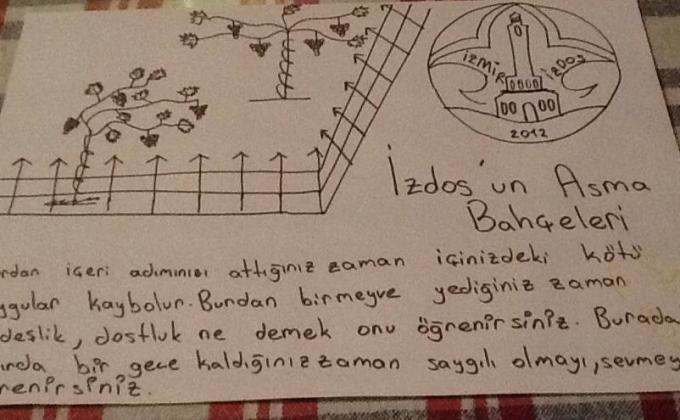 İZMİR İZDOS
2012
İzdos'un Asma
Bahçeleri
rdan içeri adımınızı attığınız zaman içinizdeki kötü
ygular kaybolur. Bundan birmeyve yediğiniz zaman
deşlik, dostluk ne demek onu öğrenirsiniz. Burada
ında bir gece kaldığınız zaman saygılı olmayı, sevmey
renirsiniz.